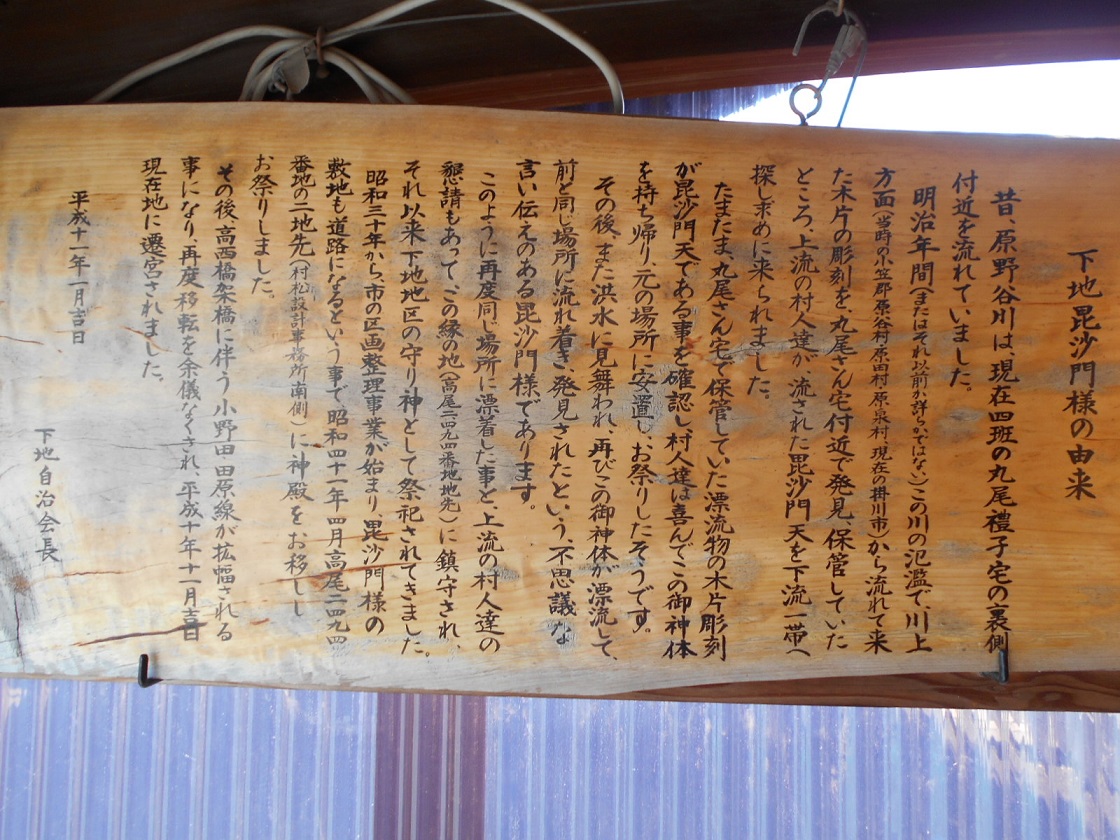 下地毘沙門様の由来
昔、原野谷川は、現在四班の丸尾禮子宅の裏側
付近を流れていました。
明治年間(またはそれ以前か詳らかではない)この川の氾濫で、川上
方面(当時の小笠郡原谷村・原田村・原泉村、現在の掛川市)から流れて来
た木片の彫刻を、丸尾さん宅付近で発見、保管していた
ところ、上流の村人達が、流された毘沙門天を下流一帯へ
探し求めに来られました。
たまたま、丸尾さん宅で保管していた漂流物の木片彫刻
が毘沙門天である事を確認し、村人達は喜んでこの御神体
を持ち帰り、元の場所に安置し、お祭りしたそうです。
その後、また洪水に見舞われ、再びこの御神体が漂流して、
前と同じ場所に流れ着き、発見されたという、不思議な
言い伝えのある毘沙門様であります。
このように再度同じ場所に漂着した事と、上流の村人達の
懇請もあって、この縁の地(高尾二四九四番地地先)に鎮守され、
それ以来下地地区の守り神として祭祀されてきました。
昭和三十年から市の区画整理事業が始まり、毘沙門様の
敷地も道路になるという事で、昭和四十一年四月高尾二四九四
番地の二地先(村松設計事務所南側)に神殿をお移しし
お祭りしました。
その後、高西橋架橋に伴う小野田田原線が拡幅される
事になり、再度移転を余儀なくされ、平成十年十一月吉日
現在地に遷宮されました。
平成十一年一月吉日
下地自治会長